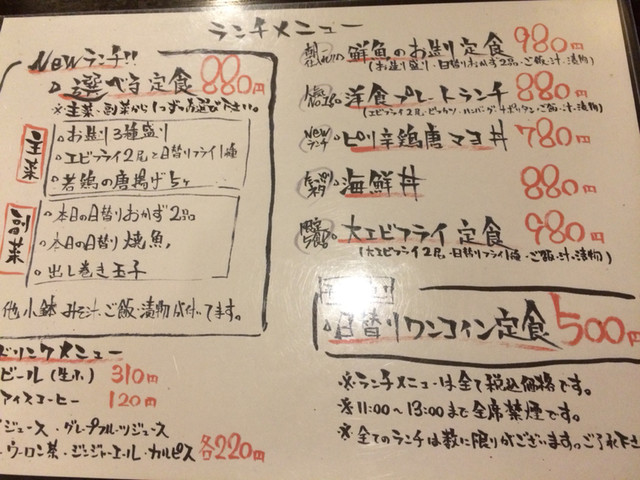 ランチメニュー
Newランチ!!
選べる定食 880円
※主菜・副菜から1つずつお選び下さい。
主菜
お造り3種盛り
エビフライ2尾と日替りフライ1種
若鶏の唐揚げ5ヶ
副菜
本日の日替りおかず2品
本日の日替り焼魚
出し巻き玉子
他小鉢 みそ汁・ご飯・漬物が付いてます。
ドリンクメニュー
ビール(生小) 310円
アイスコーヒー 120円
ジュース・グレープフルーツジュース
ウーロン茶・ジンジャーエール・カルピス 各220円
鮮魚のお造り定食 980円
(お造り盛り・日替りおかず2品・ご飯・汁・漬物)
人気No.1 洋食プレートランチ 880円
(エビフライ2尾・ハンバーグ・ナポリタン・ご飯・汁・漬物)
Newランチ ピリ辛鶏唐マヨ丼 780円
海鮮丼 880円
大エビフライ定食 980円
(大エビフライ2尾・日替りフライ1種・ご飯・汁・漬物)
日替りワンコイン定食 500円
※ランチメニューは全て税込価格です。
※11:00～13:00まで全席禁煙です。
※全てのランチは数に限りがございますのでご了承下さ